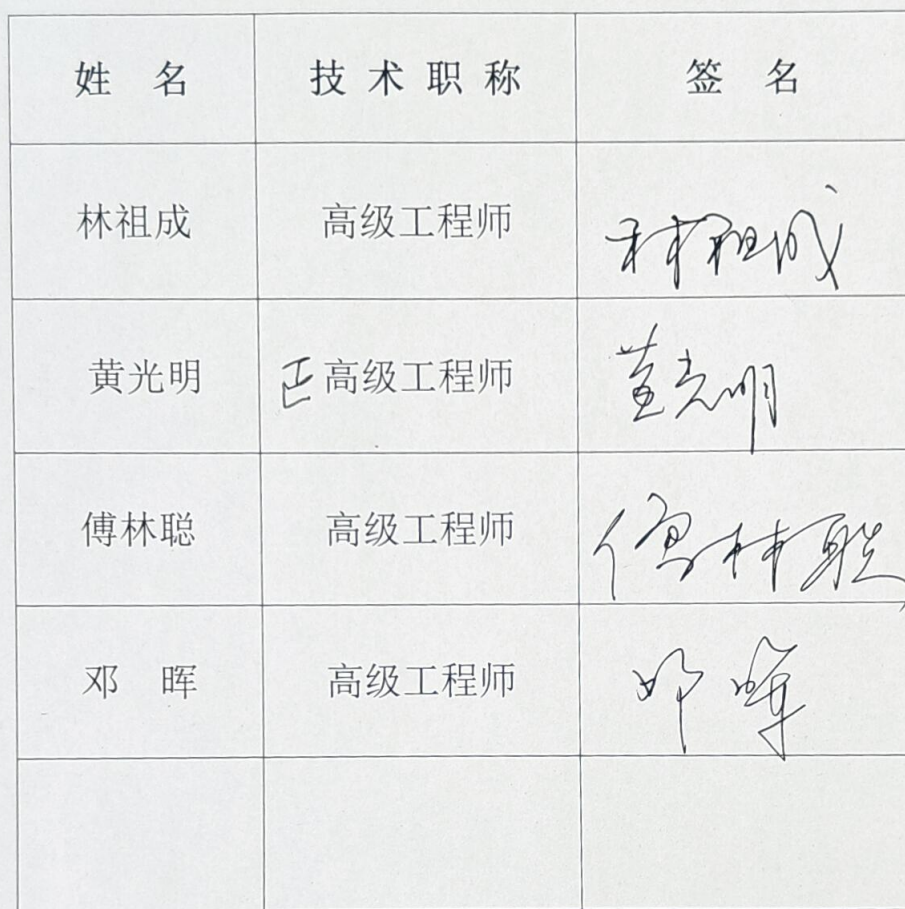 姓 名 技术职称 签 名
林祖成 高级工程师 林祖成
黄光明 正高级工程师 黄光明
傅林聪 高级工程师 傅林聪
邓 晖 高级工程师 邓晖